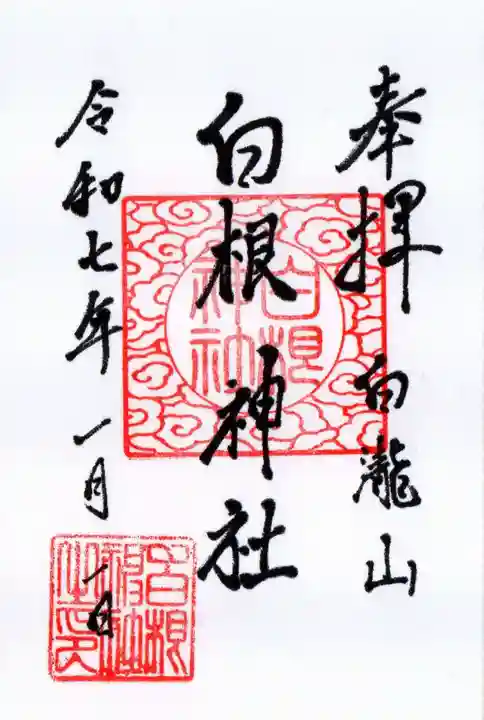 奉拝 白瀧山
白根神社
令和七年 一月 一日
白根神社
白根神社之印